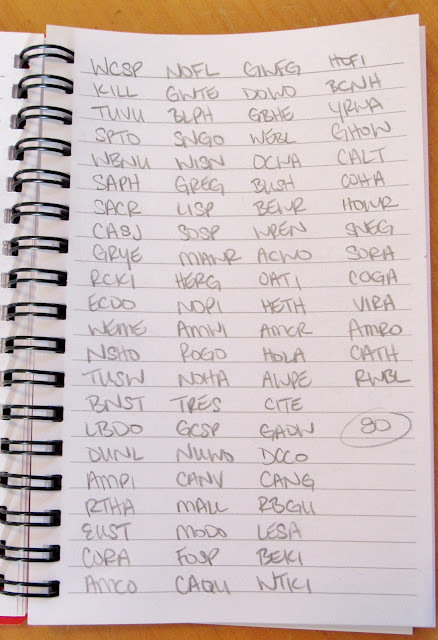 WCSP NOFL GWFG HOFI
KILL GWTE DOWO BCNH
TUVU BLPH GBHE YRWA
SPTO SNGO WEBL GHOW
WBNU WISN OCWA CALT
SAPH GREG BUSH COHA
SACR LISP BEWR HOWR
CASJ SOSP WREN SNEG
GRYE MAWR ACWO SORA
RCKI HERG OATI COGA
ECDO NOPI HETH VIRA
WEME AMWI AMCR AMRO
NSHO ROGO HOLA CATH
TUSW NOHA AWPE RWBL
BNST TRES CITE
LBDO GCSP GADW 80
DUNL NUWO DCCO
AMPI CANV CANG
RTHA MALL RBGU
EUST MODO LESA
CORA FOSP BEKI
AMCO CAQU NTKI